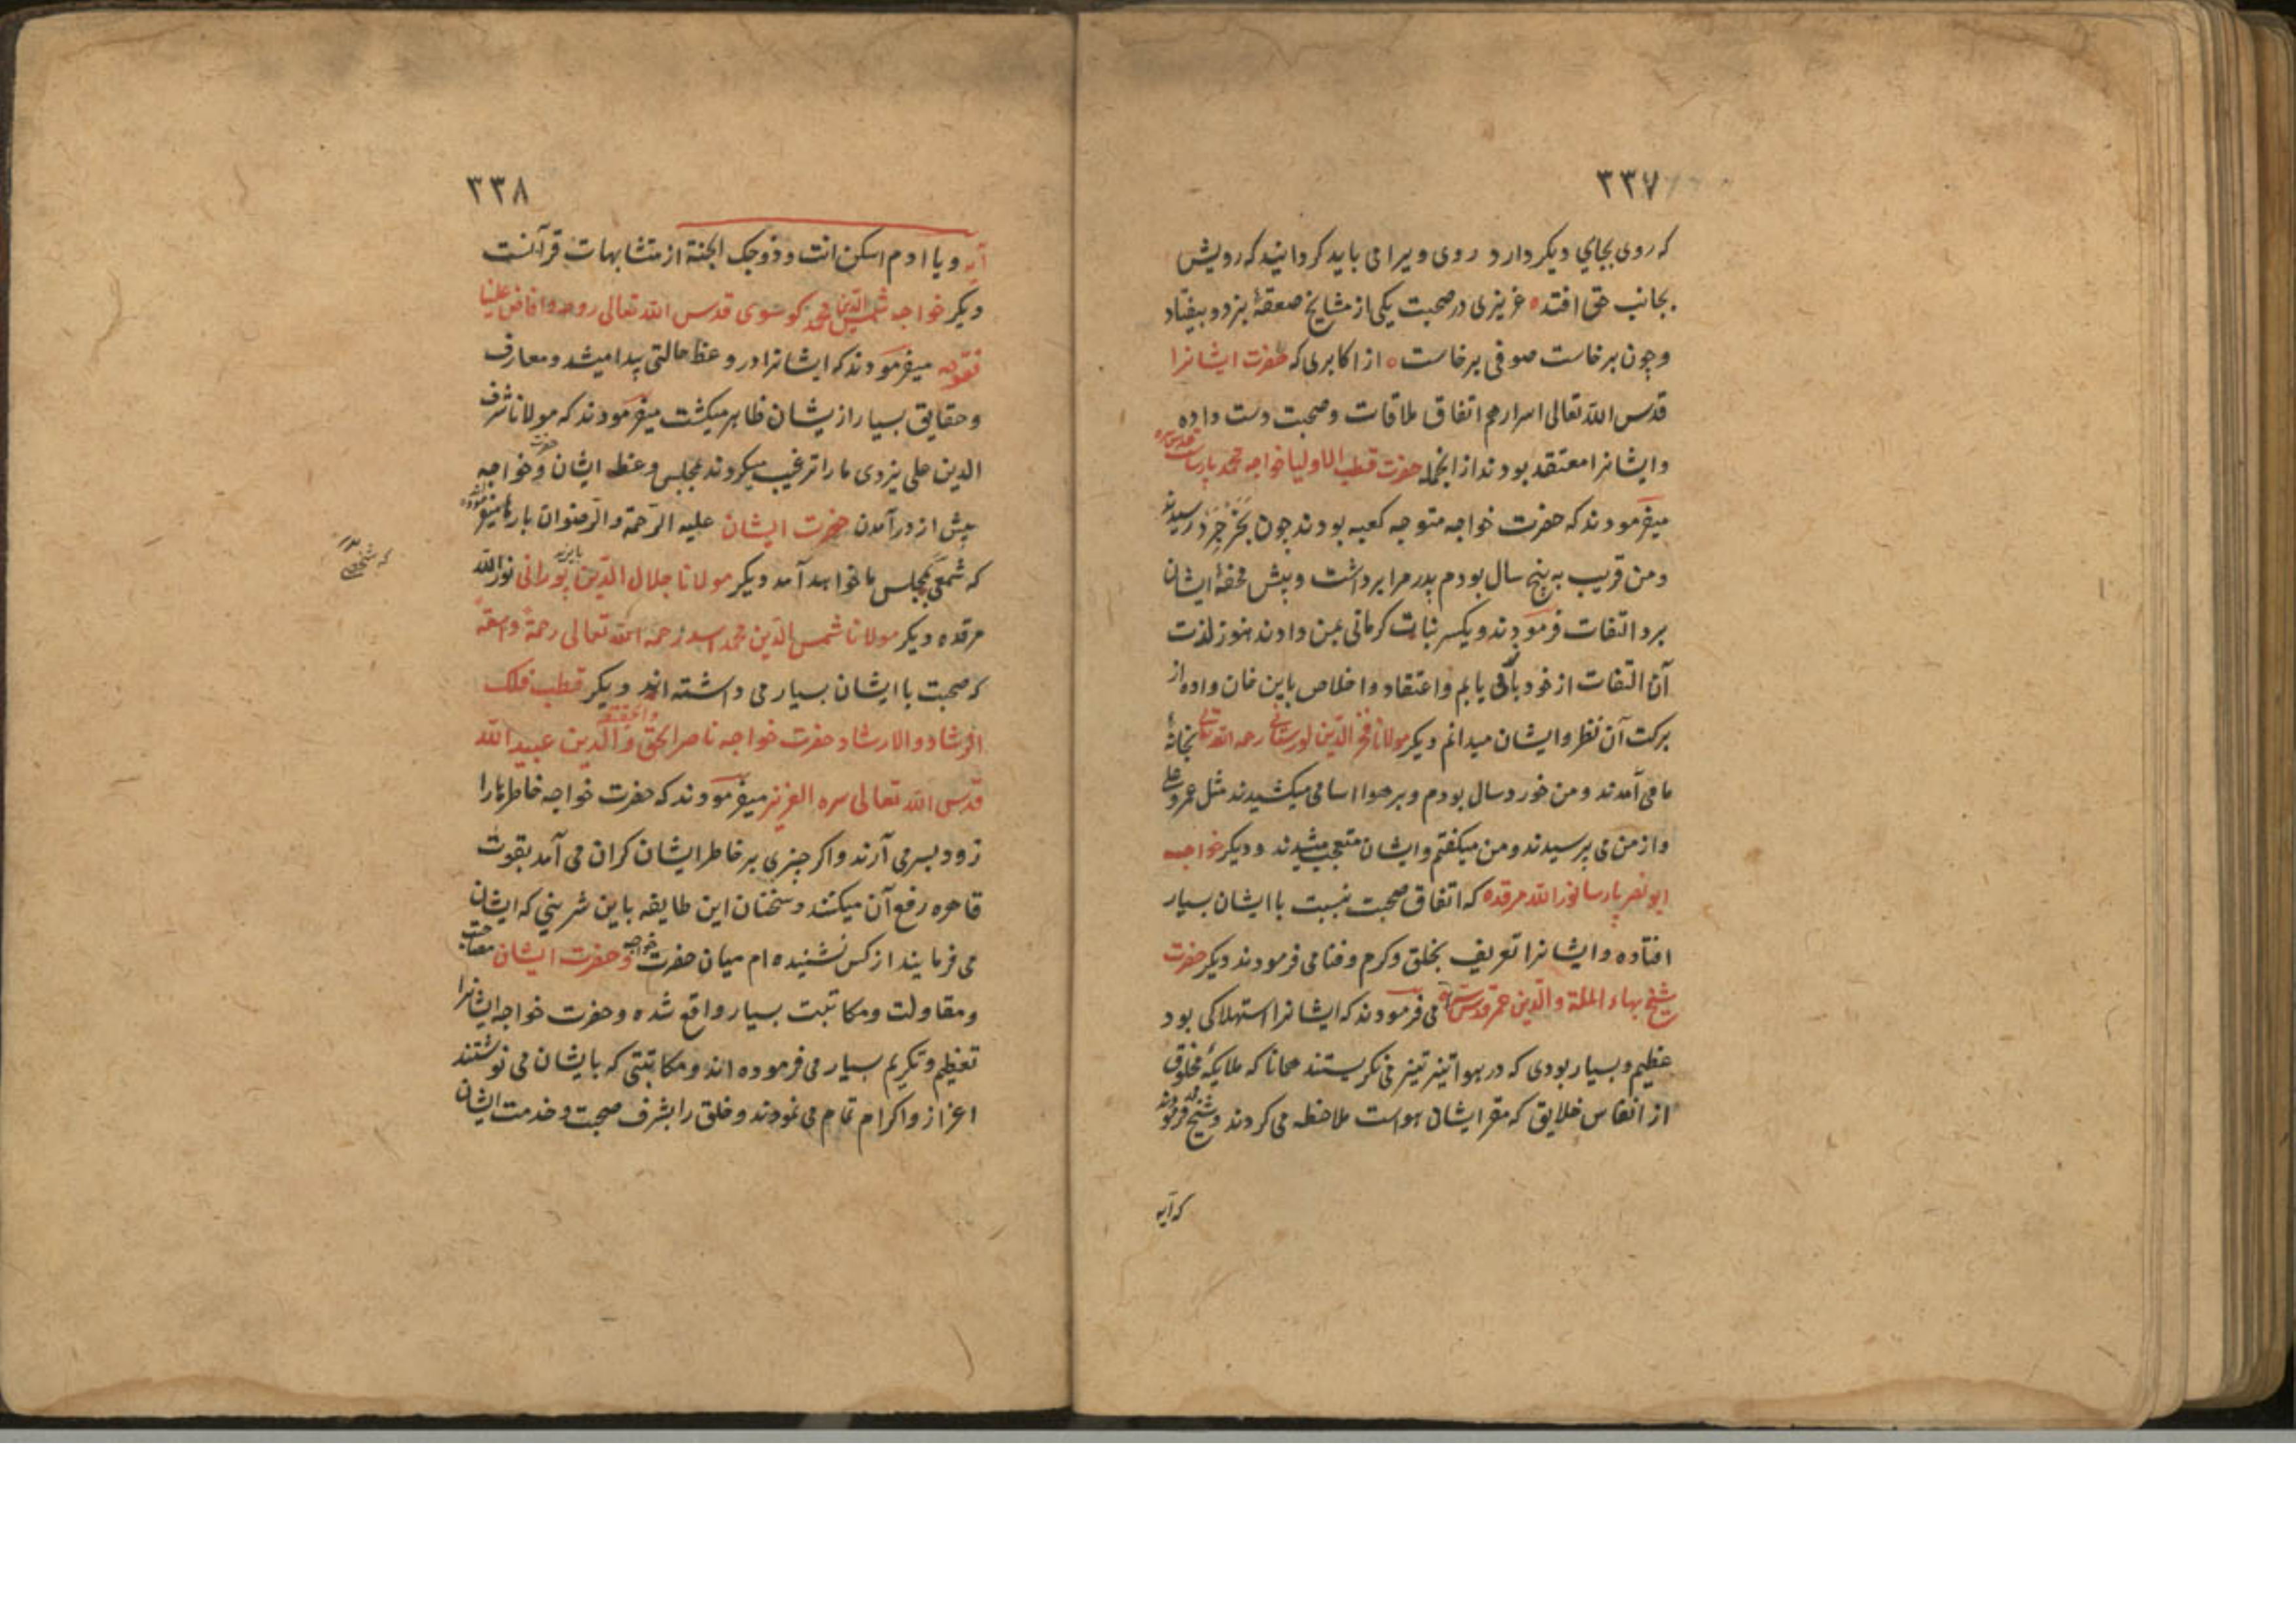 ٣٣٧
که روی بجاي دیکر دارد روی ویرا می باید کردانید که رویش
بجانب حق افتد ه عزیزی در صحبت یکی از مشایخ صعقهٔ بزد و بیفتاد
وچون برخاست صوفی برخاست ه از اکابری که حضرت ایشانرا
قدس الله تعالی اسرارهم اتفاق ملاقات وصحبت دست داده
وایشانرا معتقد بودند از انجمله حضرت قطب الاولیا خواجه محمد پارسا قدس سره
میفرمودند که حضرت خواجه متوجه کعبه بودند چون بخرجرد رسیدند
ومن قریب به پنج سال بودم پدر مرا برداشت و پیش محفهٔ ایشان
برد التفات فرمودند ویکسر نبات کرمانی بمن دادند هنوز لذت
آن التفات از خود باقی یابم واعتقاد واخلاص باین خان واده از
برکت آن نظر وایشان میدانم دیکر مولانا فخر الدین لورستانی رحمه الله تعالی بخانهٔ
ما می آمدند ومن خورد سال بودم وبر هوا اسامی میکشیدند مثل عمر وعلی
واز من می پرسیدند ومن میکفتم وایشان متعجب میشدند ودیکر خواجه
ابو نصر پارسا نور الله مرقده که اتفاق صحبت بنسبت با ایشان بسیار
افتاده وایشانرا تعریف بخلق وکرم وفنا می فرمودند دیکر حضرت
شیخ بهاء الملة والدین عمر قدس سره می فرمودند که ایشانرا استهلاکی بود
عظیم وبسیار بودی که در هوا تیز تیز می نکریستند همانا که ملایکهٔ مخلوق
از انفاس خلایق که مقر ایشان هواست ملاحظه می کردند وشیخ فرمودند
که آیه
٣٣٨
آیه ویا ادم اسکن انت وزوجک الجنة از متشابهات قرآنست
دیکر خواجه شمس الدین محمد کوسوی قدس الله تعالی روحه وافاض علینا
فتوحه میفرمودند که ایشانرا در وعظ حالتی پیدا میشد ومعارف
وحقایق بسیار از یشان ظاهر میکشت میفرمودند که مولانا شرف
الدین علی یزدی ما را ترغیب میکردند بمجلس وعظ ایشان وحضرت خواجه
پیش از درآمدن حضرت ایشان علیه الرحمة والرضوان بارها میفرمودند
که شمعی بمجلس ما خواهد آمد دیکر مولانا جلال الدین بایزید پورانی نور الله
مرقده دیکر مولانا شمس الدین محمد اسد رحمه الله تعالی رحمة واسعة
که صحبت با ایشان بسیار می داشته اند ویکر قطب فلک
الرشاد والارشاد حضرت خواجه ناصر الحق والحقیقه والدین عبید الله
قدس الله تعالی سره العزیز میفرمودند که حضرت خواجه خاطرها را
زود بسر می آرند واکر چیزی بر خاطر ایشان کران می آمد بقوت
قاهره رفع آن میکنند وسخنان این طایفه باین شرینی که ایشان
می فرمایند از کس نشنیده ام میان حضرت خواجه وحضرت ایشان مصاحبت
ومقاولت ومکاتبت بسیار واقع شده وحضرت خواجه ایشانرا
تعظیم وتکریم بسیار می فرموده اند ومکاتبتی که بایشان می نوشتند
اعزاز واکرام تمام می نمودند وخلق را بشرف صحبت وخدمت ایشان